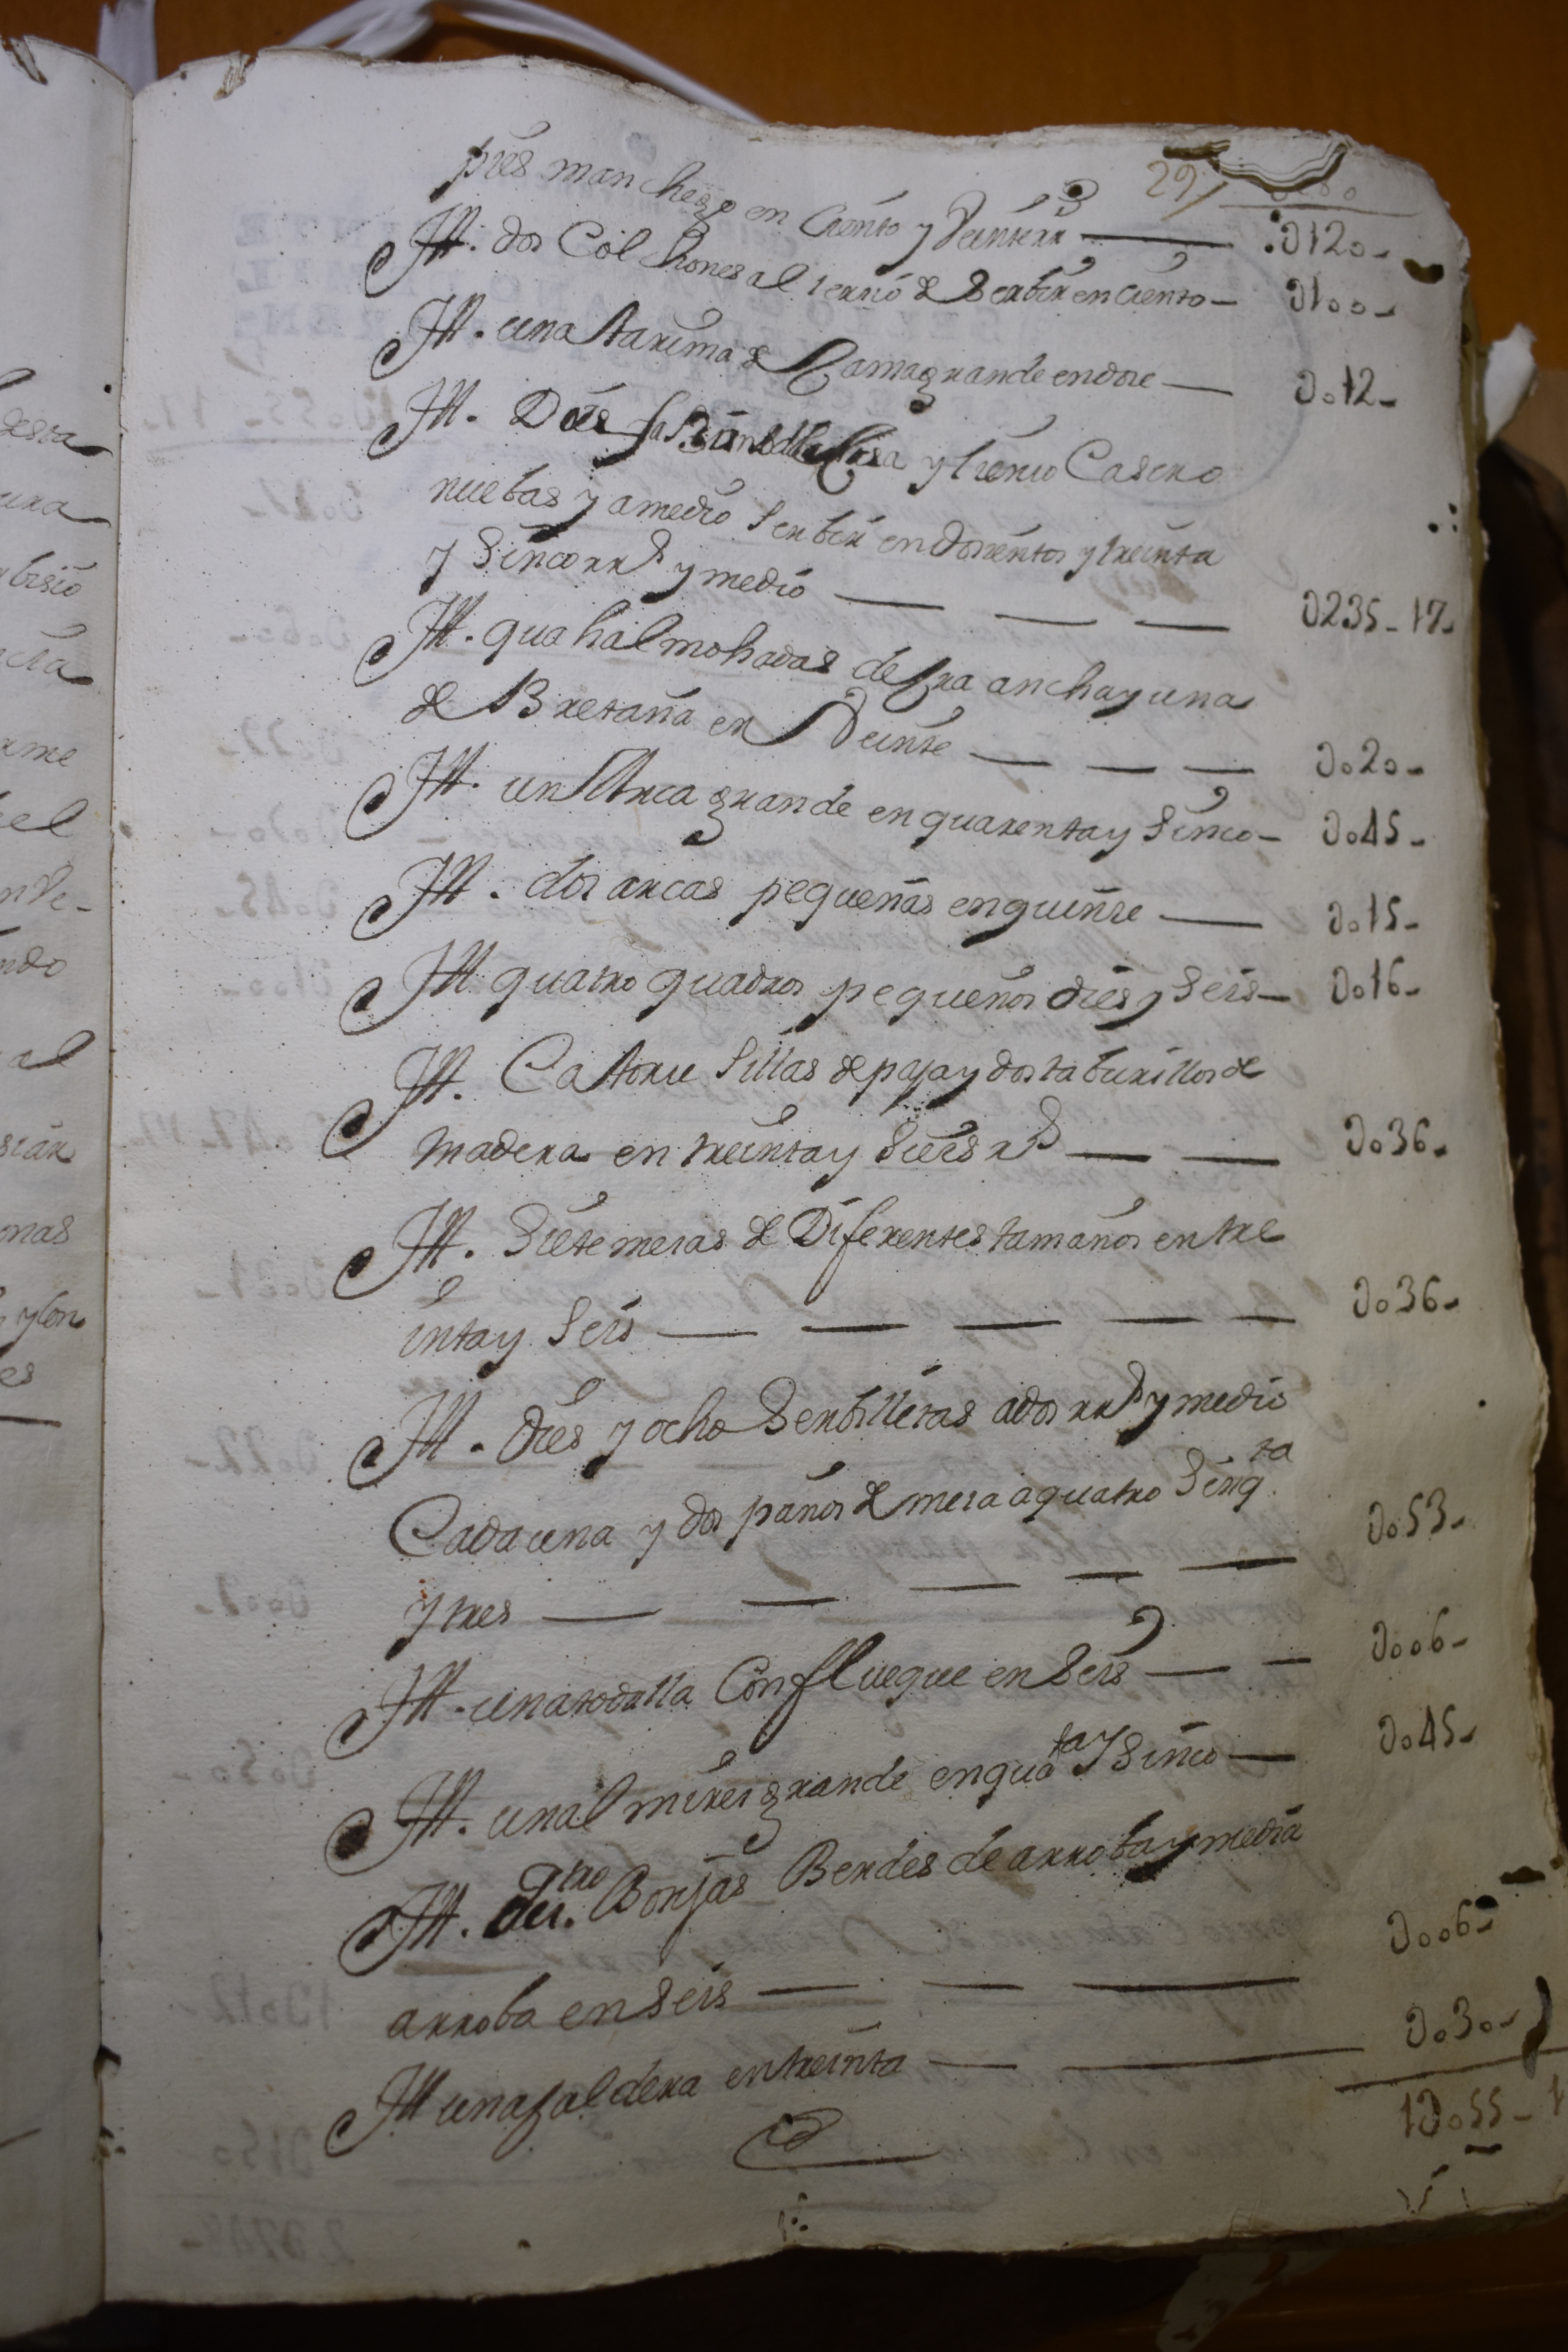 29
pies manchego en ciento y Veinte rrs 0120-
Itt. dos Colchones al 1 erzio de Serbir en ciento- 0100-
Itt. una tarima de Cama grande en dose 0012-
Itt. Dies y lienso Casero
nuebas y a medio Serbir en dosientos y treinta
y Sinco rrs y medio 0235-17-
Itt. qua halmohadas de Cra ancha y una
de Bretaña en Veinte 0020-
Itt. un Arca grande en quarenta y Sinco- 0045-
Itt. dos arcas pequeñas en quinse 0015-
Itt quatro quadros pequeños dies y Seis- 0016-
Itt. Catorse Sillas de paja y dos taburillos de
madera en treinta y Sieis rs 0036-
Itt. Siete mesas de Diferentes tamaños en tre
inta y Seis 0036-
Itt. dies y ocho Serbilletas a dos rrs y medio
Cada una y dos paños de mesa a quatro Sinqta
y tres 0053-
Itt. una todalla Con flueque en Seis 0006-
Itt. un almires grande en quata y Sinco 0045-
Itt. qtro Borjas Berdes de arroba y media
arroba en Seis 0006-
Itt una Caldera en treinta 0030-
10055-1